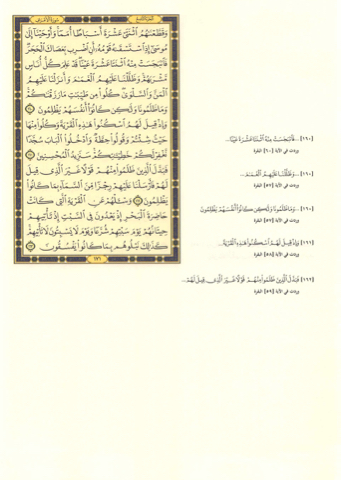 الجزء التاسع
سورة الأعراف
وَقَطَّعْنَٰهُمُ ٱثْنَتَىْ عَشْرَةَ أَسْبَاطًا أُمَمًا وَأَوْحَيْنَآ إِلَىٰ
مُوسَىٰٓ إِذِ ٱسْتَسْقَىٰهُ قَوْمُهُۥٓ أَنِ ٱضْرِب بِّعَصَاكَ ٱلْحَجَرَ
فَٱنۢبَجَسَتْ مِنْهُ ٱثْنَتَا عَشْرَةَ عَيْنًا قَدْ عَلِمَ كُلُّ أُنَاسٍ
مَّشْرَبَهُمْ وَظَلَّلْنَا عَلَيْهِمُ ٱلْغَمَٰمَ وَأَنزَلْنَا عَلَيْهِمُ
ٱلْمَنَّ وَٱلسَّلْوَىٰ كُلُوا۟ مِن طَيِّبَٰتِ مَا رَزَقْنَٰكُمْ
وَمَا ظَلَمُونَا وَلَٰكِن كَانُوٓا۟ أَنفُسَهُمْ يَظْلِمُونَ
وَإِذْ قِيلَ لَهُمُ ٱسْكُنُوا۟ هَٰذِهِ ٱلْقَرْيَةَ وَكُلُوا۟ مِنْهَا
حَيْثُ شِئْتُمْ وَقُولُوا۟ حِطَّةٌ وَٱدْخُلُوا۟ ٱلْبَابَ سُجَّدًا
نَّغْفِرْ لَكُمْ خَطِيٓـَٰٔتِكُمْ سَنَزِيدُ ٱلْمُحْسِنِينَ
فَبَدَّلَ ٱلَّذِينَ ظَلَمُوا۟ مِنْهُمْ قَوْلًا غَيْرَ ٱلَّذِى قِيلَ
لَهُمْ فَأَرْسَلْنَا عَلَيْهِمْ رِجْزًا مِّنَ ٱلسَّمَآءِ بِمَا كَانُوا۟
يَظْلِمُونَ وَسْـَٔلْهُمْ عَنِ ٱلْقَرْيَةِ ٱلَّتِى كَانَتْ
حَاضِرَةَ ٱلْبَحْرِ إِذْ يَعْدُونَ فِى ٱلسَّبْتِ إِذْ تَأْتِيهِمْ
حِيتَانُهُمْ يَوْمَ سَبْتِهِمْ شُرَّعًا وَيَوْمَ لَا يَسْبِتُونَ لَا تَأْتِيهِمْ
كَذَٰلِكَ نَبْلُوهُم بِمَا كَانُوا۟ يَفْسُقُونَ
١٧١
[١٦٠] ...فَٱنۢبَجَسَتْ مِنْهُ ٱثْنَتَا عَشْرَةَ عَيْنًا...
وردت في الآية [٦٠] البقرة
[١٦٠] ...وَظَلَّلْنَا عَلَيْهِمُ ٱلْغَمَٰمَ...
وردت في الآية [٥٧] البقرة
[١٦٠] ...وَمَا ظَلَمُونَا وَلَٰكِن كَانُوٓا۟ أَنفُسَهُمْ يَظْلِمُونَ
وردت في الآية [٥٧] البقرة
[١٦١] وَإِذْ قِيلَ لَهُمُ ٱسْكُنُوا۟ هَٰذِهِ ٱلْقَرْيَةَ...
وردت في الآية [٥٨] البقرة
[١٦٢] فَبَدَّلَ ٱلَّذِينَ ظَلَمُوا۟ مِنْهُمْ قَوْلًا غَيْرَ ٱلَّذِى قِيلَ لَهُمْ...
وردت في الآية [٥٩] البقرة